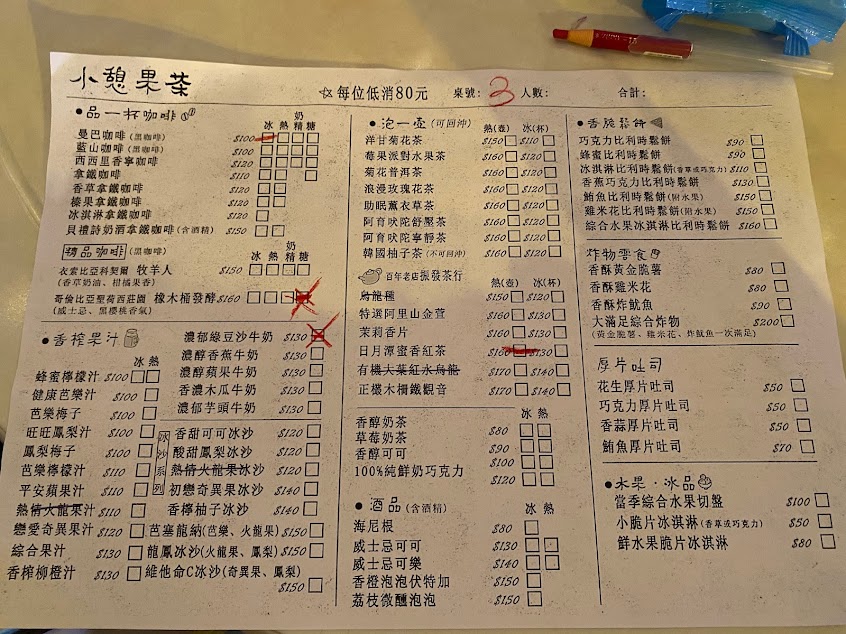 小憩果茶
☆每位低消80元 桌號: 3 人數: 合計:
●品一杯咖啡
冰 熱 奶精 糖
曼巴咖啡(黑咖啡) $100
藍山咖啡(黑咖啡) $100
西西里香寧咖啡 $120
拿鐵咖啡 $110
香草拿鐵咖啡 $120
榛果拿鐵咖啡 $120
冰淇淋拿鐵咖啡 $120
貝禮詩奶酒拿鐵咖啡(含酒精) $150
精品咖啡(黑咖啡)
冰 熱 奶精 糖
衣索比亞科契爾 牧羊人 $150
(香草奶油、柑橘果香)
哥倫比亞聖荷西莊園 橡木桶發酵 $160
(威士忌、黑櫻桃香氣)
●香榨果汁
冰 熱
蜂蜜檸檬汁 $100
健康芭樂汁 $100
芭樂梅子 $100
旺旺鳳梨汁 $100
鳳梨梅子 $100
芭樂檸檬汁 $110
平安蘋果汁 $110
熱情火龍果汁 $110
戀愛奇異果汁 $120
綜合果汁 $130
香榨柳橙汁 $130
濃郁綠豆沙牛奶 $130
濃醇香蕉牛奶 $130
濃醇蘋果牛奶 $130
香濃木瓜牛奶 $130
濃郁芋頭牛奶 $130
冰沙系列
香甜可可冰沙 $120
酸甜鳳梨冰沙 $120
熱情火龍果冰沙 $120
初戀奇異果冰沙 $140
香檸柚子冰沙 $140
芭塞龍納(芭樂、火龍果) $150
龍鳳冰沙(火龍果、鳳梨) $150
維他命C冰沙(奇異果、鳳梨)
$150
●泡一壺(可回沖)
熱(壺) 冰(杯)
洋甘菊花茶 $150 $110
莓果派對水果茶 $160 $120
菊花普洱茶 $160 $120
浪漫玫瑰花茶 $160 $120
助眠薰衣草茶 $160 $120
阿育吠陀舒壓茶 $160 $120
阿育吠陀寧靜茶 $160 $120
韓國柚子茶(不可回沖) $160 $120
百年老店振發茶行
熱(壺) 冰(杯)
烏龍種 $150 $120
特選阿里山金萱 $160 $130
茉莉香片 $160 $130
日月潭蜜香紅茶 $160 $130
有機大葉紅水烏龍 $170 $140
正欉木柵鐵觀音 $170 $140
冰 熱
香醇奶茶 $80
草莓奶茶 $90
香醇可可 $100
100%純鮮奶巧克力 $120
●酒品(含酒精)
冰 熱
海尼根 $80
威士忌可可 $130
威士忌可樂 $140
香橙泡泡伏特加 $150
荔枝微醺泡泡 $150
●香脆鬆餅
巧克力比利時鬆餅 $90
蜂蜜比利時鬆餅 $90
冰淇淋比利時鬆餅(香草或巧克力) $110
香蕉巧克力比利時鬆餅 $130
鮪魚比利時鬆餅(附水果) $150
雞米花比利時鬆餅(附水果) $150
綜合水果冰淇淋比利時鬆餅 $160
炸物零食
香酥黃金脆薯 $80
香酥雞米花 $80
香酥炸魷魚 $90
大滿足綜合炸物 $200
(黃金脆薯、雞米花、炸魷魚一次滿足)
厚片吐司
花生厚片吐司 $50
巧克力厚片吐司 $50
香蒜厚片吐司 $50
鮪魚厚片吐司 $70
●水果·冰品
當季綜合水果切盤 $100
小脆片冰淇淋(香草或巧克力) $50
鮮水果脆片冰淇淋 $80